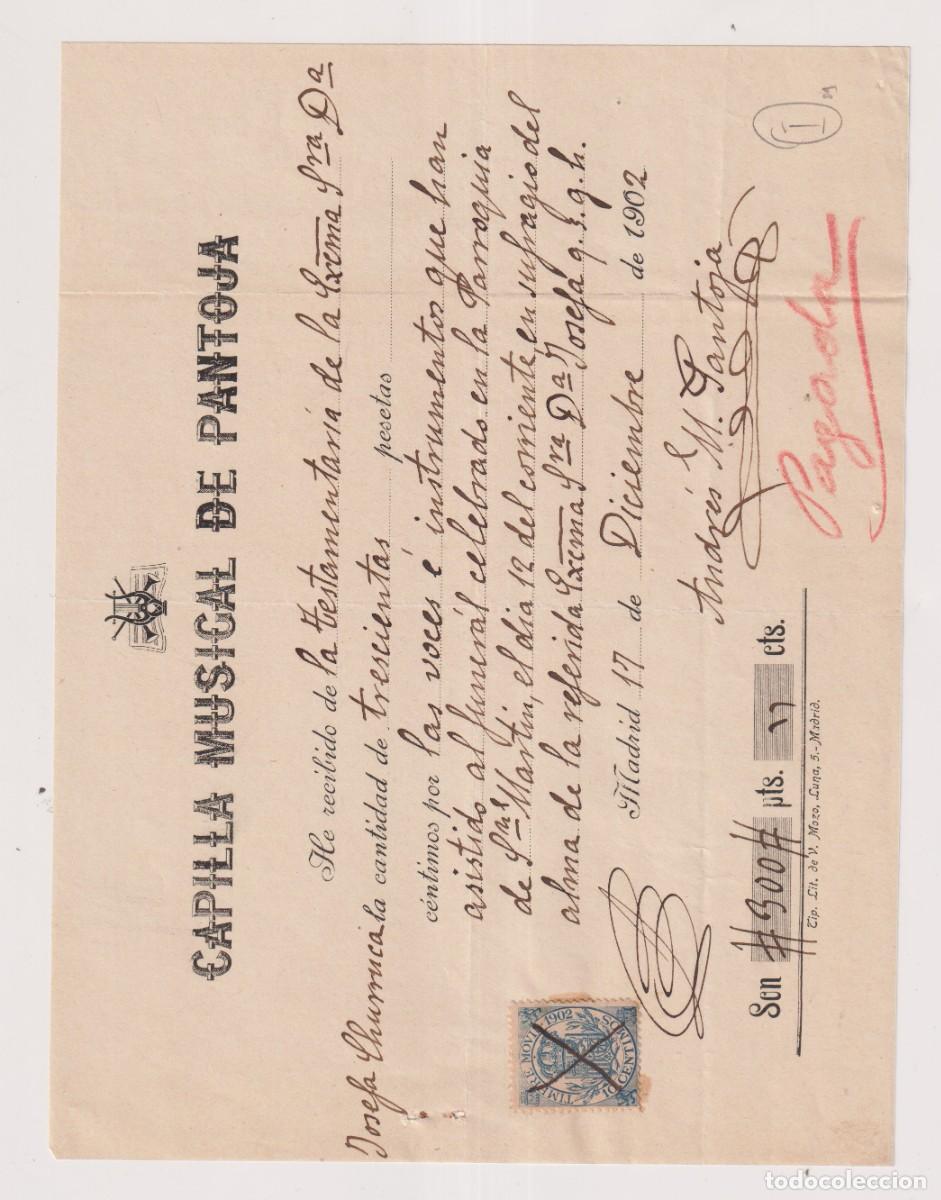 CAPILLA MUSICAL DE PANTOJA
He recibido de la Testamentaría de la Exema Sra Da
Josefa Churruca la cantidad de trescientas pesetas
céntimos por las vocés é instrumentos que han
asistido al funerál celebrado en la Parroquia
de Sn Martin, el dia 12 del corriente, en sufragio del
alma de la referida Exema Sra Da Josefa q. s. g. h.
Madrid 17 de Diciembre de 1902
Andrés M. Pantoja
Son #300# pts. " cts.
Tip. Lit. de V. Mozo, Luna, 5.-Madrid.
Pagada
I
TIMBRE MOVIL 1902
10 CENTIMOS
todocoleccion